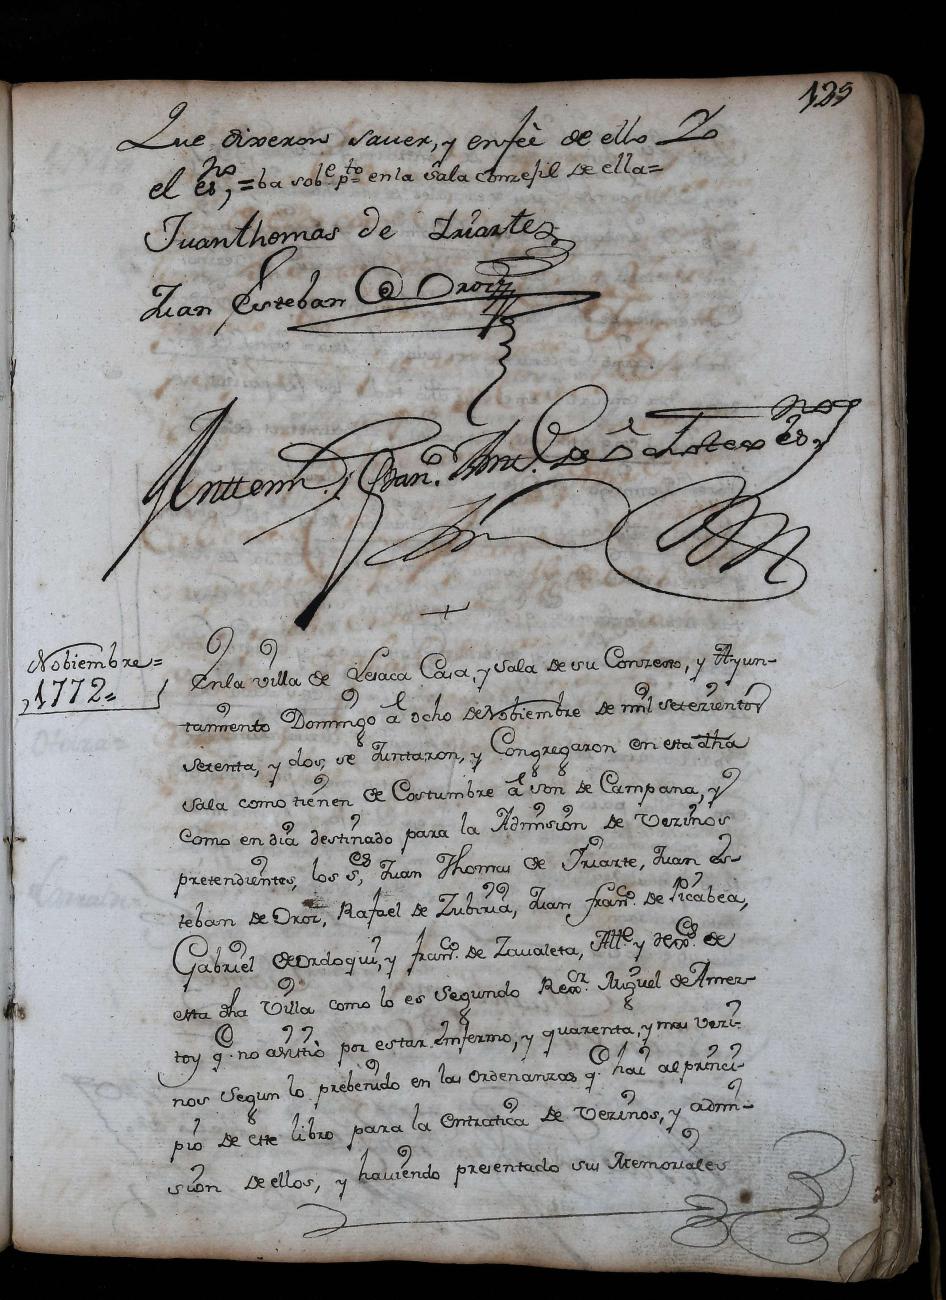 129
Que dixeron saver, y en feè de ello Yo
el es.no = ba sob.e p.to en la Sala conzejil de ella =
Juan thomas de Iriarte
Juan Esteban de Oroz
Anttonio Juan Ant.o de es.no
Nobiembre =
1772 =
En la villa de Lesaca Casa, y Sala de su Conzejo, y Ayun-
tamiento Domingo a ocho de Nobiembre de mil setezientos
setenta, y dos, se Juntaron, y Congregaron en esta dha
sala como tienen de Costumbre a son de Campana, y
como en dia destinado para la Admision de Vezinos
pretendientes, los S.es Juan Thomas de Iriarte, Juan es-
teban de Oroz, Rafael de Zubiria, Juan fran.co de Picabea,
Gabriel de Ordoqui, y fran.co de Zavaleta, Alle. y Rex.es de
esta dha Villa como lo es Segundo Rex.or Miguel de Amez-
toy q.e no asistiò por estar Enfermo, y quarenta, y mas vezi-
nos segun lo prebenido en las ordenanzas q.e hai al princi-
pio de este libro para la Entratica de Vezinos, y admi-
sion de ellos, y haviendo presentado sus Memoriales